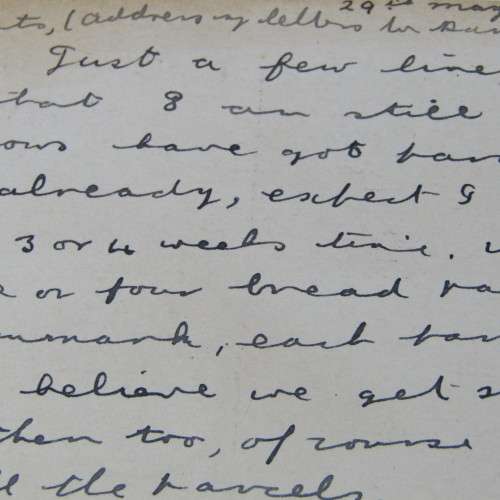 29th May
(address of letters the same
Just a few line
that I am still
ows have got par
already, expect I
3 or 4 weeks time.
e or four bread pa
nmark, each par
believe we get s
then too, of course
ll the parcels